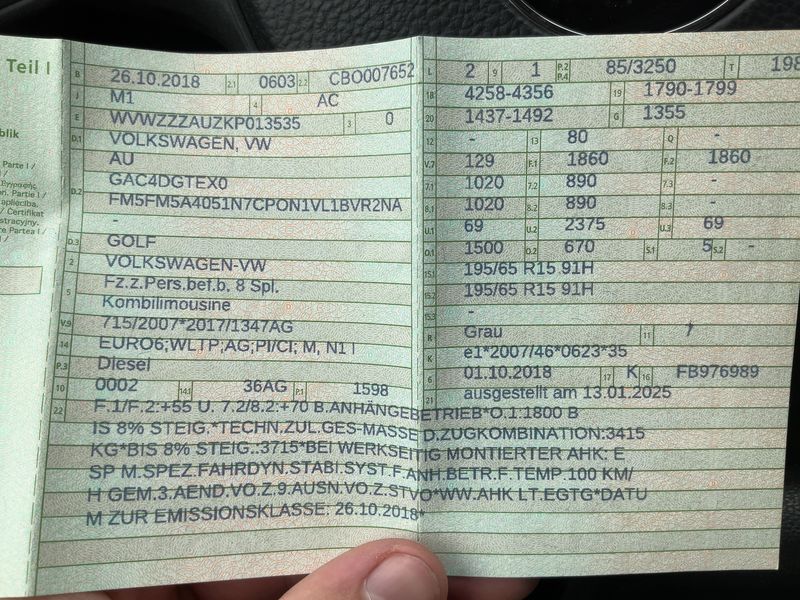 Teil I
blik
Parte I /
Εγγραφής
n. Partie I /
apliecība.
/ Certifikat
stracyjny.
re Partea I /
B 26.10.2018 2.1 0603 2.2 CBO007652
J M1 4 AC
E WVWZZZAUZKP013535 3 0
D.1 VOLKSWAGEN, VW
AU
D.2 GAC4DGTEX0
FM5FM5A4051N7CPON1VL1BVR2NA
-
D.3 GOLF
2 VOLKSWAGEN-VW
5 Fz.z.Pers.bef.b. 8 Spl.
Kombilimousine
V.9 715/2007*2017/1347AG
14 EURO6;WLTP;AG;PI/CI; M, N1 I
P.3 Diesel
10 0002 14.1 36AG P.1 1598
L 2 9 1 P.2 P.4 85/3250 T 198
18 4258-4356 19 1790-1799
20 1437-1492 G 1355
12 - 13 80 Q -
V.7 129 F.1 1860 F.2 1860
7.1 1020 7.2 890 7.3 -
8.1 1020 8.2 890 8.3 -
U.1 69 U.2 2375 U.3 69
O.1 1500 O.2 670 S.1 5 S.2 -
15.1 195/65 R15 91H
15.2 195/65 R15 91H
15.3 -
R Grau 11
K e1*2007/46*0623*35
6 01.10.2018 17 K 16 FB976989
21 ausgestellt am 13.01.2025
22 F.1/F.2:+55 U. 7.2/8.2:+70 B.ANHÄNGEBETRIEB*O.1:1800 B
IS 8% STEIG.*TECHN.ZUL.GES-MASSE D.ZUGKOMBINATION:3415
KG*BIS 8% STEIG.:3715*BEI WERKSEITIG MONTIERTER AHK: E
SP M.SPEZ.FAHRDYN.STABI.SYST.F.ANH.BETR.F.TEMP.100 KM/
H GEM.3.AEND.VO.Z.9.AUSN.VO.Z.STVO*WW.AHK LT.EGTG*DATU
M ZUR EMISSIONSKLASSE: 26.10.2018*